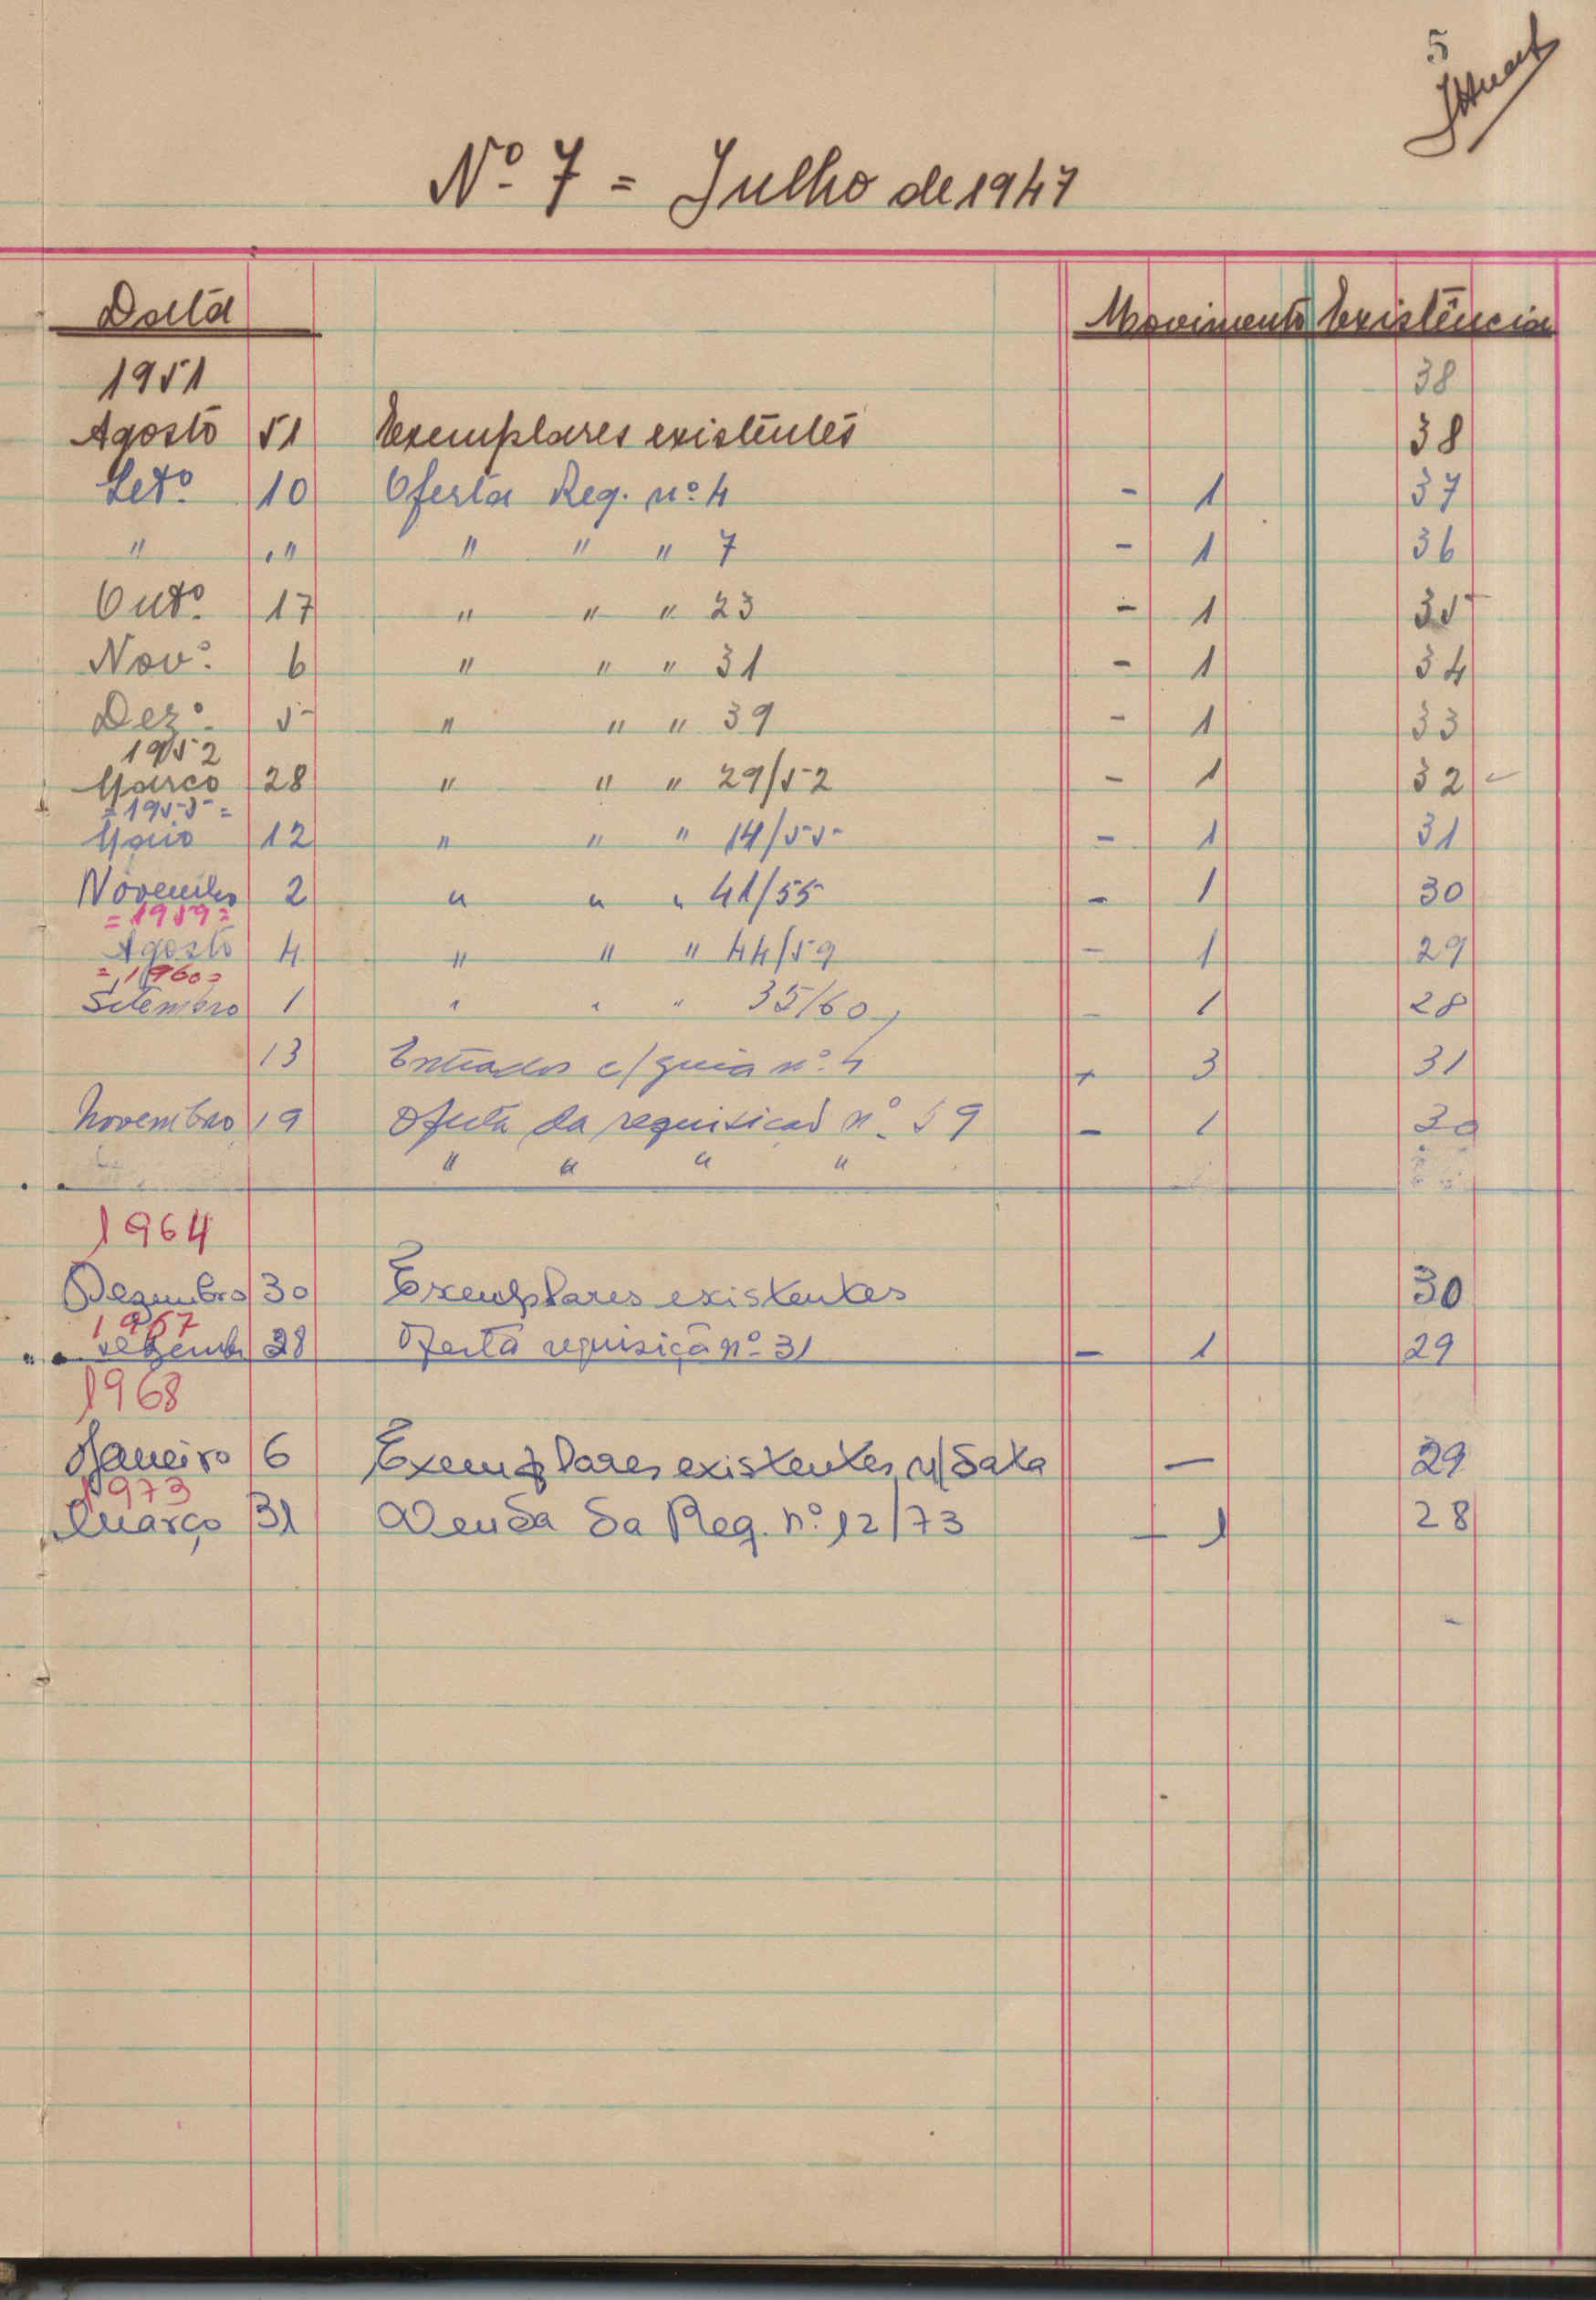 5
Nº 7 = Julho de 1947
Data Movimento Existência
1951 38
Agosto 51 Exemplares existentes 38
Setº 10 Oferta Req. nº 4 - 1 37
" " " " " 7 - 1 36
Outº 17 " " " 23 - 1 35
Novº 6 " " " 31 - 1 34
Dezº 5 " " " 39 - 1 33
1952
Março 28 " " " 29/52 - 1 32
=1955=
Maio 12 " " " 14/55 - 1 31
Novembro 2 " " " 41/55 - 1 30
=1959=
Agosto 4 " " " 44/59 - 1 29
=1960=
Setembro 1 " " " 35/60 - 1 28
13 Entrados c/guia nº 4 + 3 31
Novembro 19 Oferta da requisição nº 59 - 1 30
" " " "
1964
Dezembro 30 Exemplares existentes 30
1967
Dezemb 28 Oferta requisiçã nº 31 - 1 29
1968
Janeiro 6 Exemplares existentes n/data — 29
1973
Março 31 Venda da Req. nº 12/73 - 1 28
-